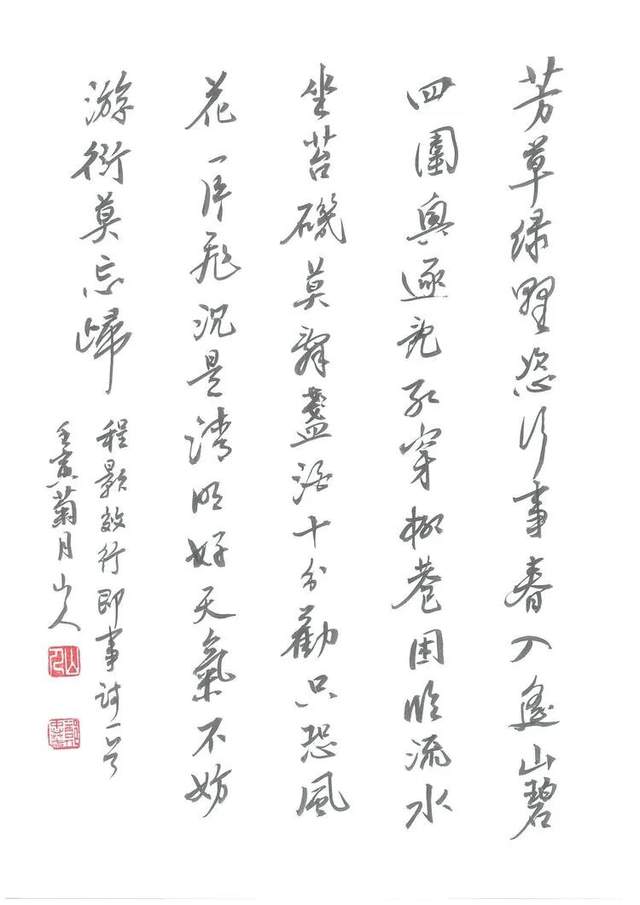 芳草绿野恣行事春入遥山碧
四圍興逐乱红穿柳巷困临流水
坐苔磯莫辞盞酒十分勸只恐風
花一片飛况是清明好天氣不妨
游衍莫忘歸
程颢郊行即事诗一首
壬寅菊月山人
山人